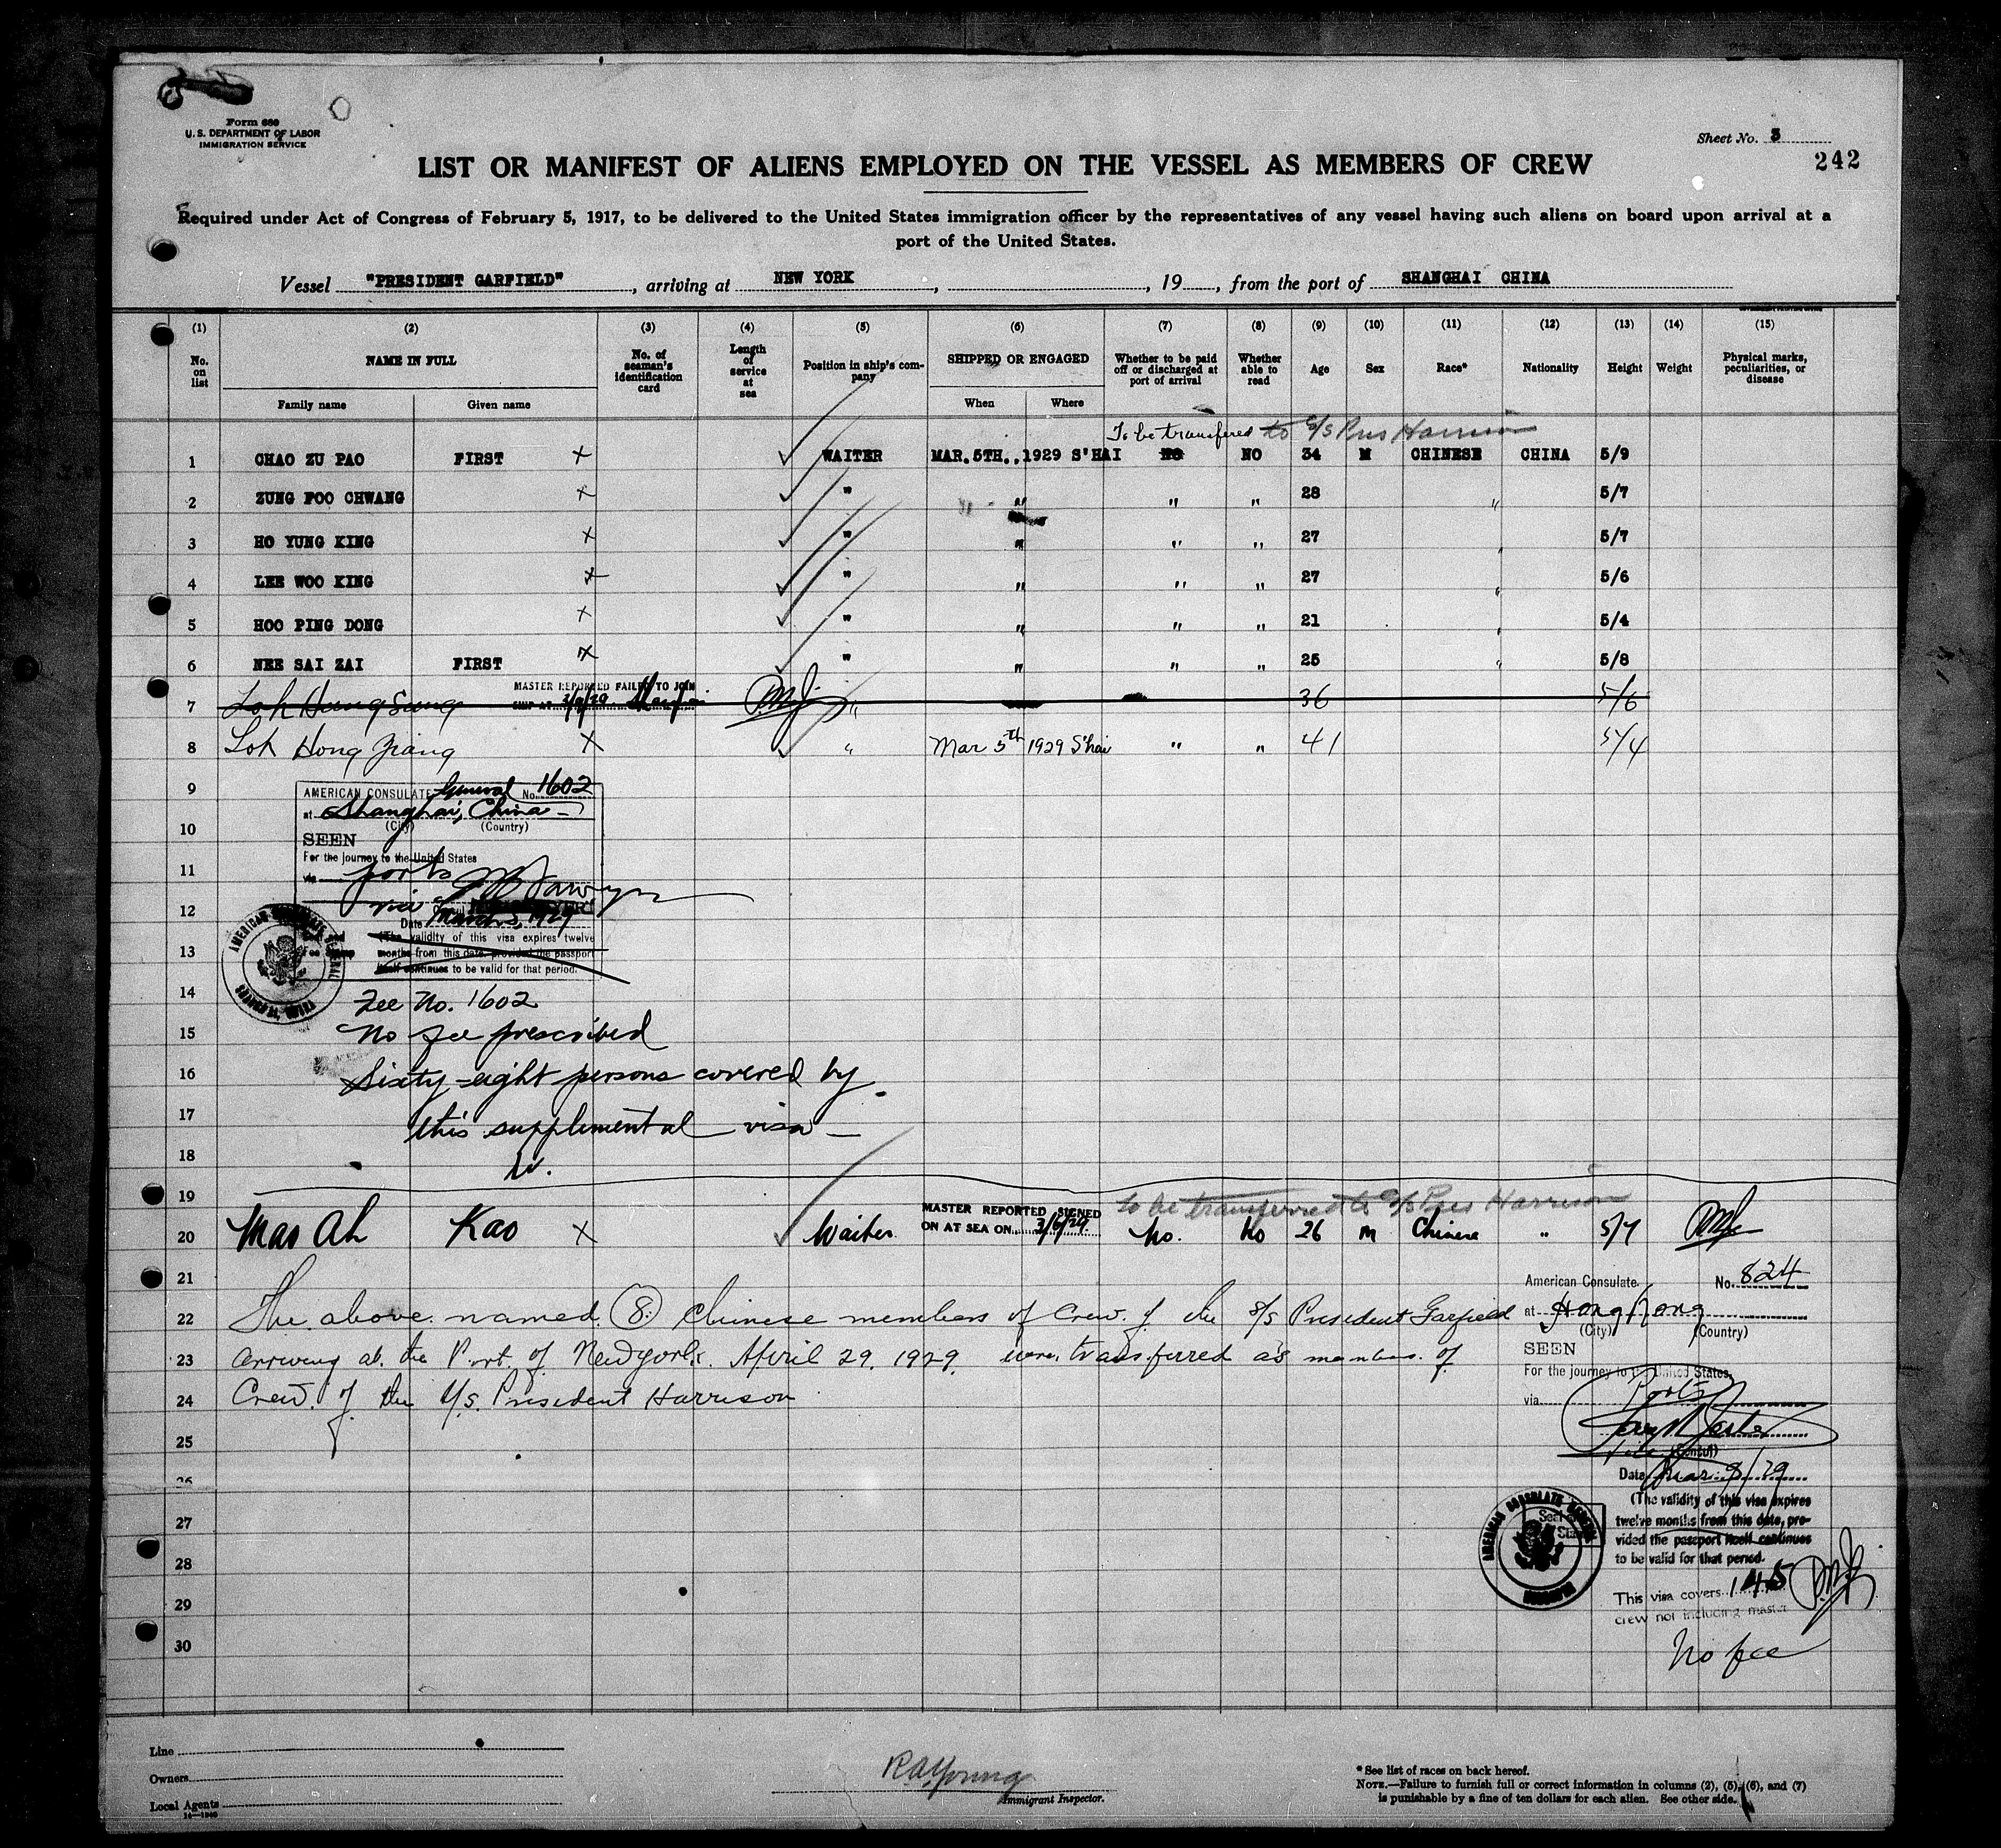 Form 680
U. S. DEPARTMENT OF LABOR
IMMIGRATION SERVICE
Sheet No. 3
242
LIST OR MANIFEST OF ALIENS EMPLOYED ON THE VESSEL AS MEMBERS OF CREW
Required under Act of Congress of February 5, 1917, to be delivered to the United States immigration officer by the representatives of any vessel having such aliens on board upon arrival at a
port of the United States.
Vessel "PRESIDENT GARFIELD", arriving at NEW YORK, , 19 , from the port of SHANGHAI CHINA
(1) (2) (3) (4) (5) (6) (7) (8) (9) (10) (11) (12) (13) (14) (15)
No. on list NAME IN FULL Family name Given name No. of seaman's identification card Length of service at sea Position in ship's company SHIPPED OR ENGAGED When Where Whether to be paid off or discharged at port of arrival Whether able to read Age Sex Race* Nationality Height Weight Physical marks, peculiarities, or disease
To be transfered to S/S Pres Harrison
1 CHAO ZU PAO FIRST X WAITER MAR. 5TH., 1929 S'HAI NO NO 34 M CHINESE CHINA 5/9
2 ZUNG FOO CHWANG X " " " " 28 " 5/7
3 HO YUNG KING X " " " " 27 " 5/7
4 LEE WOO KING X " " " " 27 " 5/6
5 HOO PING DONG X " " " " 21 " 5/4
6 NEE SAI ZAI FIRST X " " " " 25 " 5/8
7 Loh Hung Sung MASTER REPORTED FAILED TO JOIN SHIP AT " 36 5/6
8 Loh Hong Jiang X " Mar 5th 1929 S'hai " " 41 5/4
9
AMERICAN CONSULATE General No. 1602
at Shanghai, China
(City) (Country)
10
SEEN
For the journey to the United States
11
via ports
12
via
Date March 5, 1929
(The validity of this visa expires twelve
13
months from this date, provided the passport
itself continues to be valid for that period.
AMERICAN CONSULATE GENERAL SHANGHAI, CHINA
14
Fee No. 1602
15
No fee prescribed
16
Sixty-eight persons covered by
17
this supplemental visa
18
19
To be transferred to S/S Pres Harrison
20 Mao Ah Kao X Waiter MASTER REPORTED SIGNED ON AT SEA ON 3/6/29 No. No 26 M Chinese " 5/7
21
American Consulate. No. 824
22
The above named (8) Chinese members of Crew of the S/S President Garfield
at Hong Kong
(City) (Country)
23
arriving at the Port of New York. April 29, 1929 were transferred as members of
SEEN
For the journey to the United States,
24
Crew of the S/S. President Harrison
via Ports
25
(Consul)
26
Date Mar 9/29
(The validity of this visa expires
27
twelve months from this date, pro-
vided the passport itself continues
to be valid for that period.
AMERICAN CONSULATE GENERAL
28
This visa covers 145
crew not including master
29
30
No fee
Line
Owners
Local Agents
R A Young
Immigrant Inspector.
* See list of races on back hereof.
NOTE.—Failure to furnish full or correct information in columns (2), (5), (6), and (7)
is punishable by a fine of ten dollars for each alien. See other side.